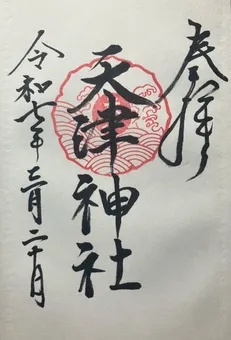 奉拝
天津神社
令和七年三月二十日